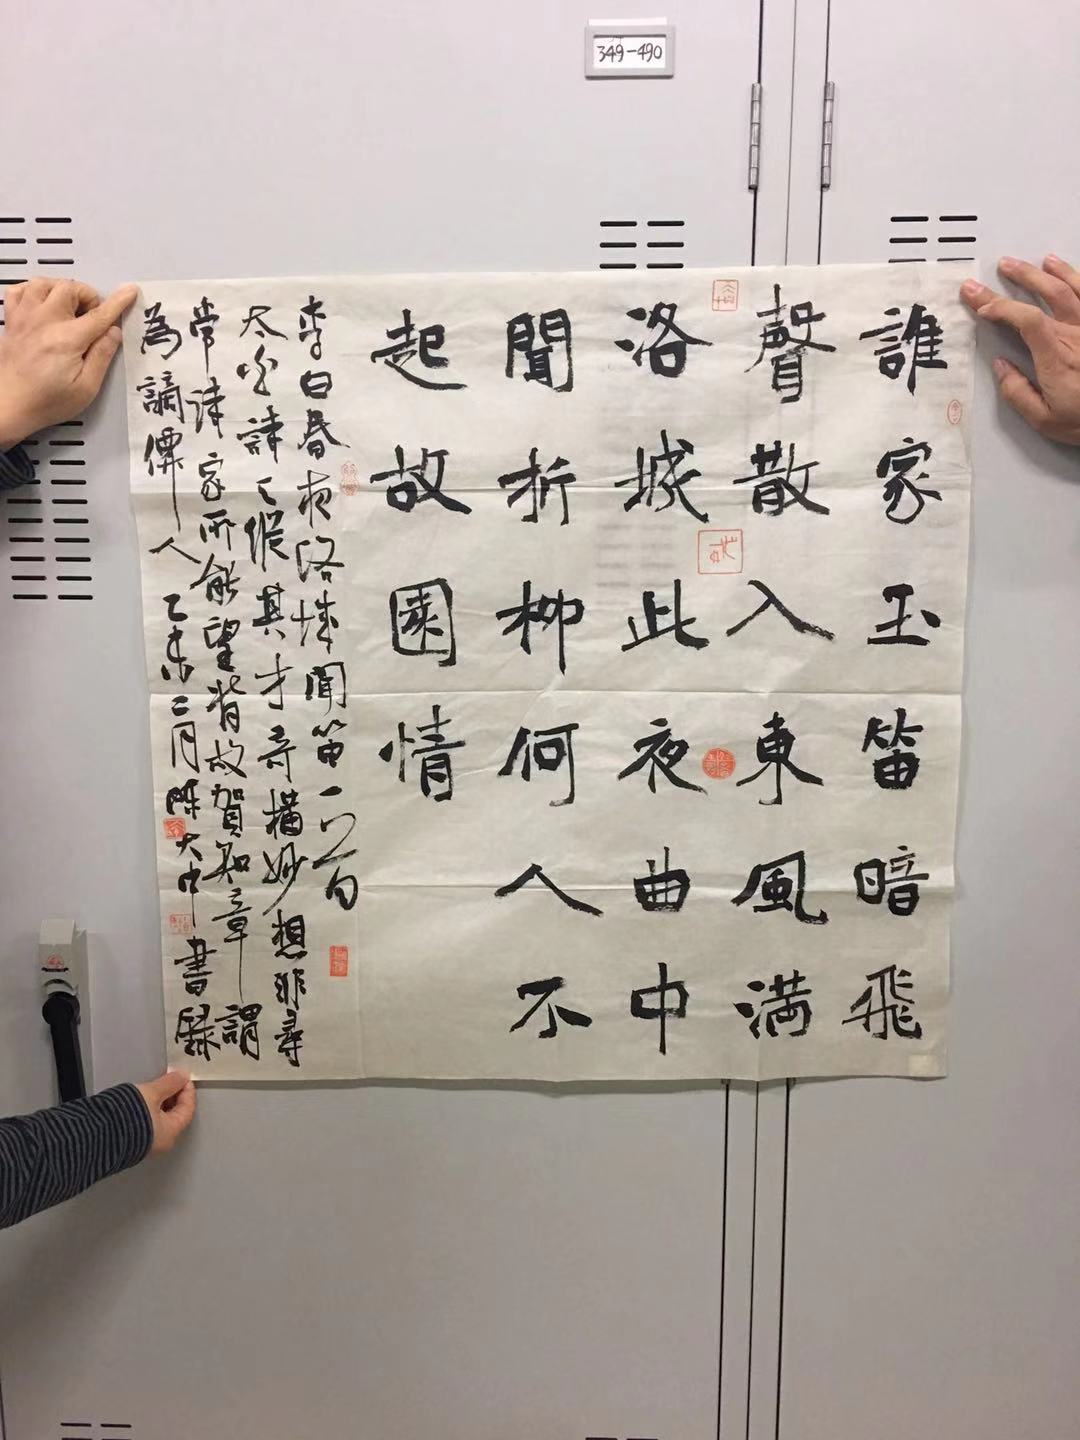 349-490
誰家玉笛暗飛
聲散入東風満
洛城此夜曲中
聞折柳何人不
起故園情
李白春夜洛城聞笛一首
太白詩之縱其才奇構妙想非尋
常詩家所能望背故賀知章謂
為謫僊人乙未二月陳大中書録